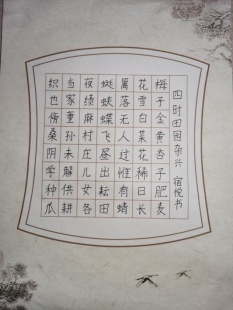 四时田园杂兴 宿悦书
梅子金黄杏子肥麦
花雪白菜花稀日长
篱落无人过惟有蜻
蜓蛱蝶飞昼出耘田
夜绩麻村庄儿女各
当家童孙未解供耕
织也傍桑阴学种瓜